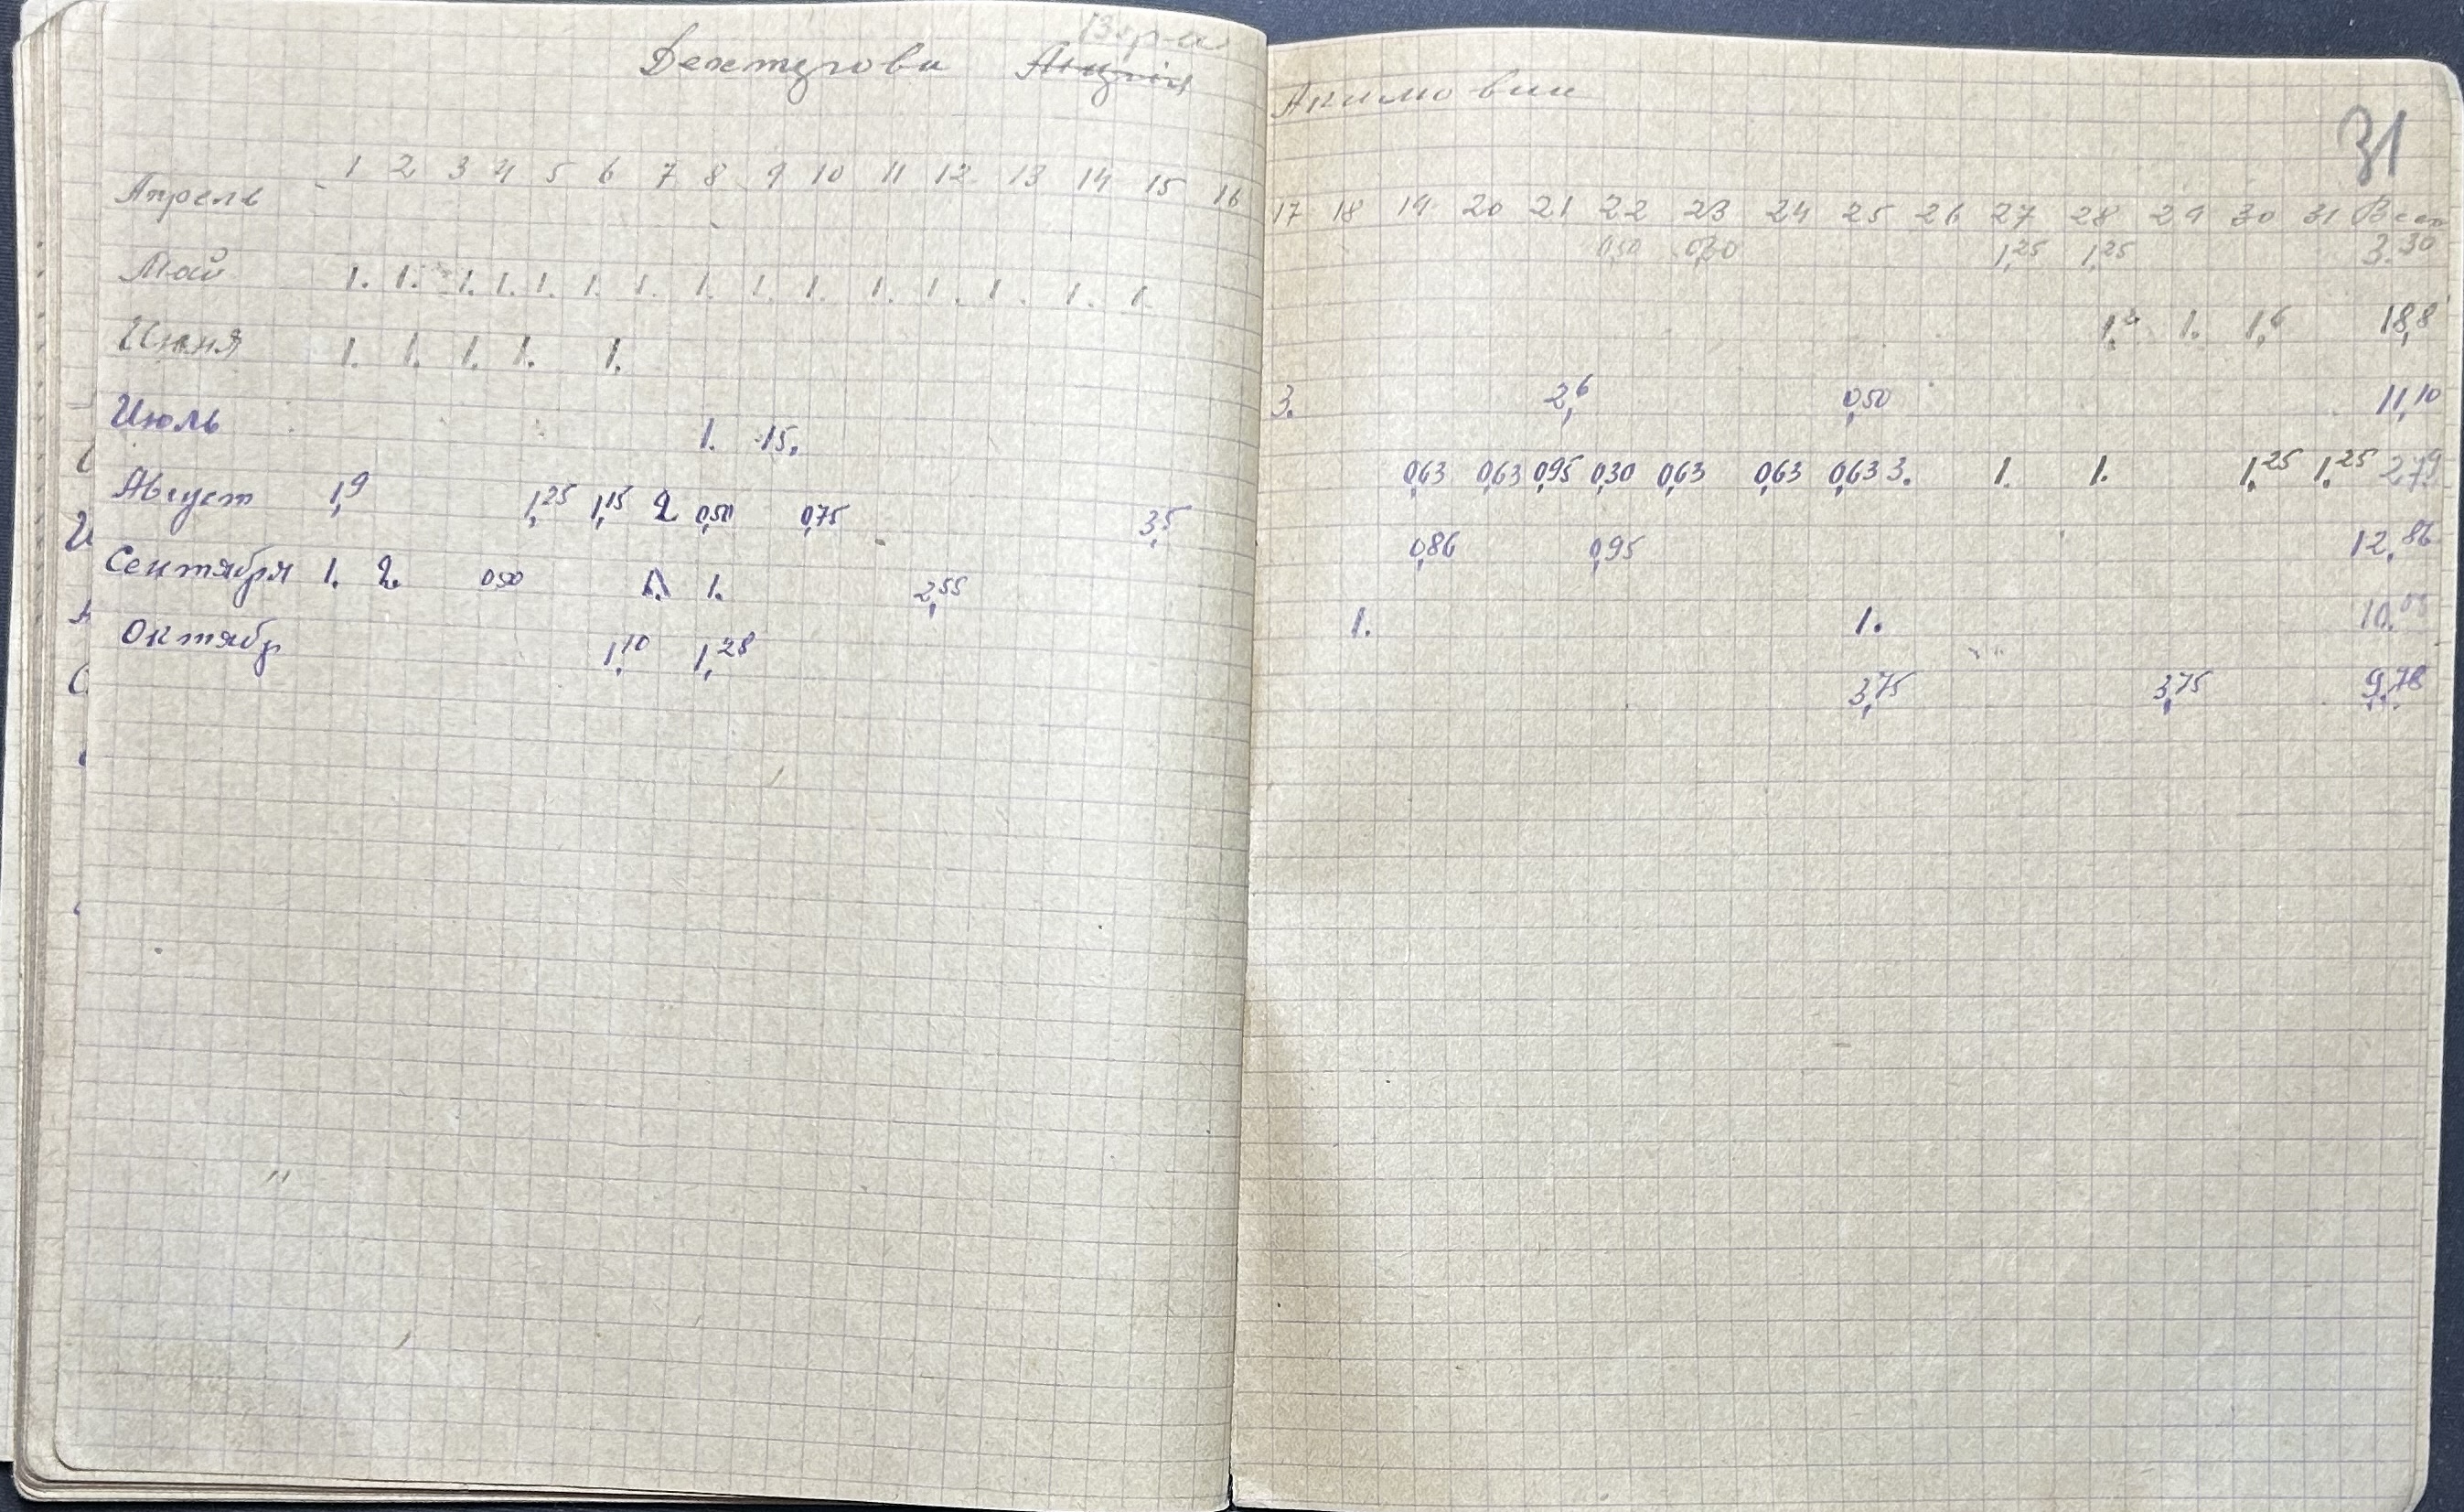 Вера
Дехтерова Акимовна
31
1 2 3 4 5 6 7 8 9 10 11 12 13 14 15 16 17 18 19 20 21 22 23 24 25 26 27 28 29 30 31 Всего
Апрель 0,50 0,30 1,25 1,25 3.30
Май 1. 1. 1. 1. 1. 1. 1. 1. 1. 1. 1. 1. 1. 1. 1. 1. 1,6 18,8
Июня 1. 1. 1. 1. 1. 3. 2,6 0,50 11,10
Июль 1. 15. 0,63 0,63 0,95 0,30 0,63 0,63 0,63 3. 1. 1. 1,25 1,25 27,9
Август 1,9 1,25 1,15 2 0,50 0,75 3,5 0,86 0,95 12,86
Сентября 1. 2. 0,50 1. 1. 2,55 1. 1. 10,05
Октябр 1,10 1,28 3,75 3,75 9,78